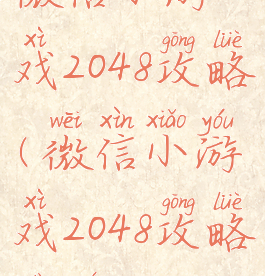 微信小游
xì gōng lüè
戏2048攻略
wēi xìn xiǎo yóu
(微信小游
xì gōng lüè
戏2048攻略